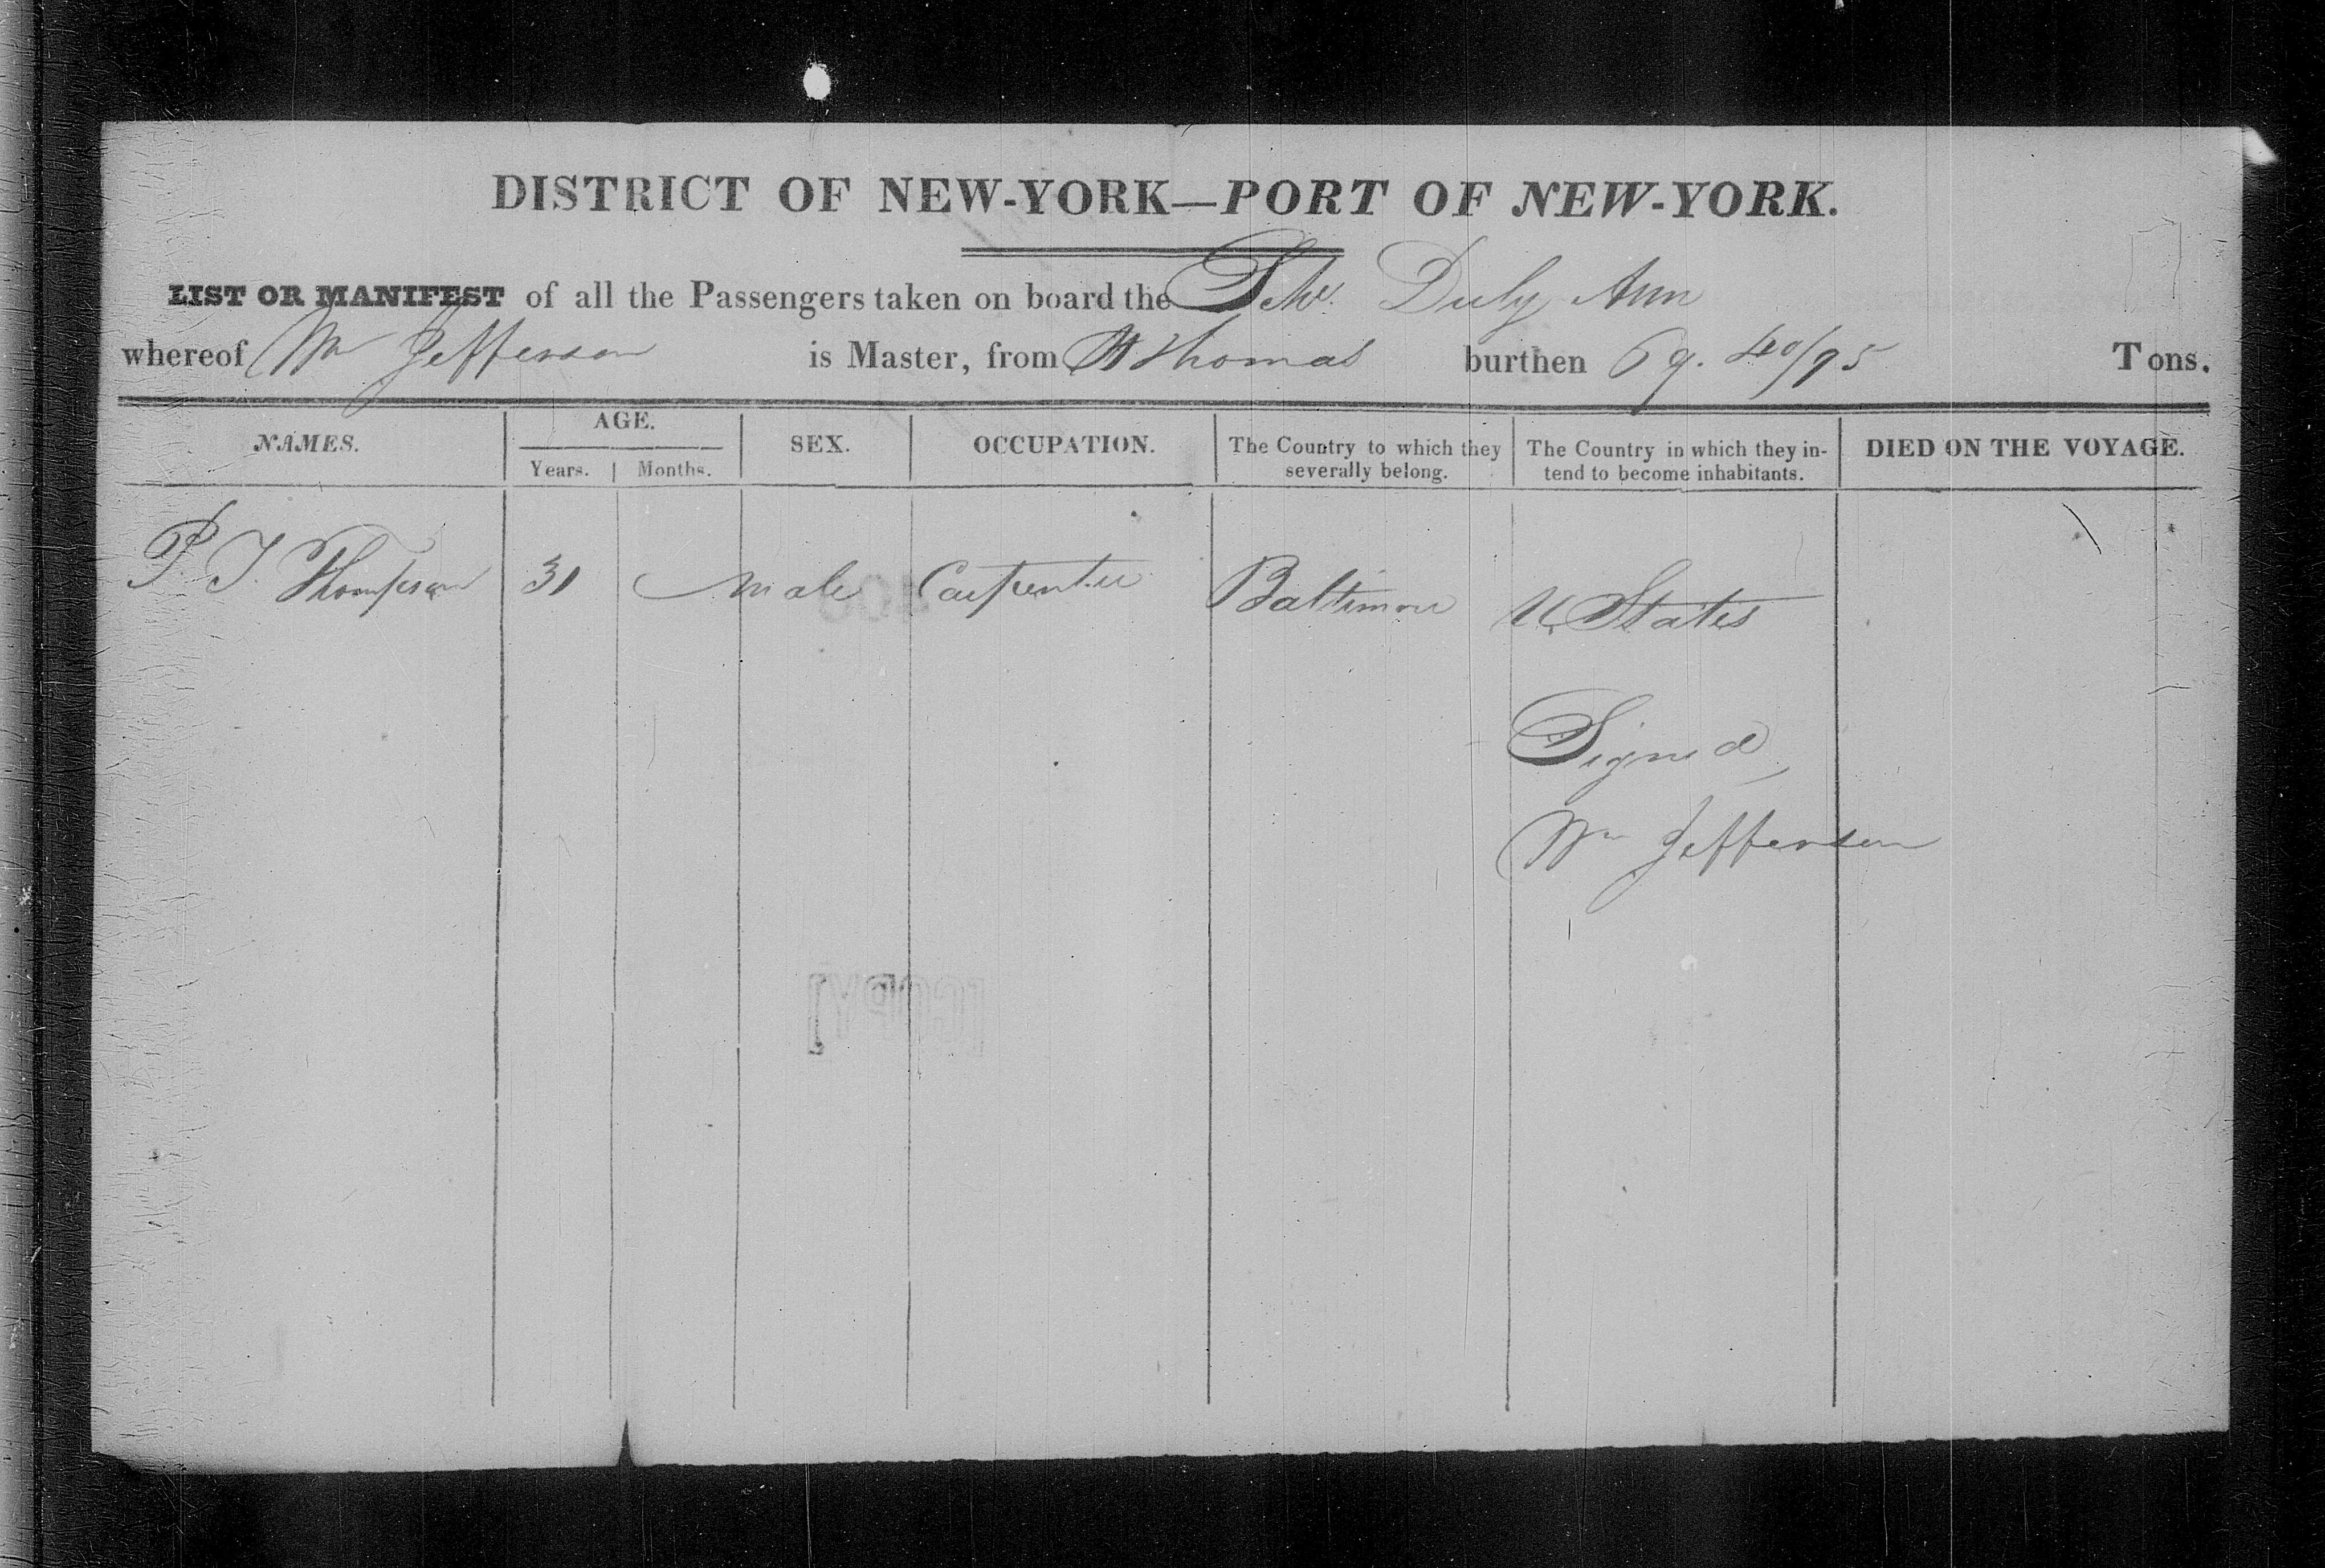 DISTRICT OF NEW-YORK—PORT OF NEW-YORK.
LIST OR MANIFEST of all the Passengers taken on board the Schr. Duly Ann
whereof Wm Jefferson is Master, from St Thomas burthen 69. 40/95 Tons.
NAMES. AGE. SEX. OCCUPATION. The Country to which they severally belong. The Country in which they intend to become inhabitants. DIED ON THE VOYAGE.
Years. Months.
P. J. Thompson 31 Male Carpenter Baltimore U. States
Signed
Wm Jefferson
[COPY]